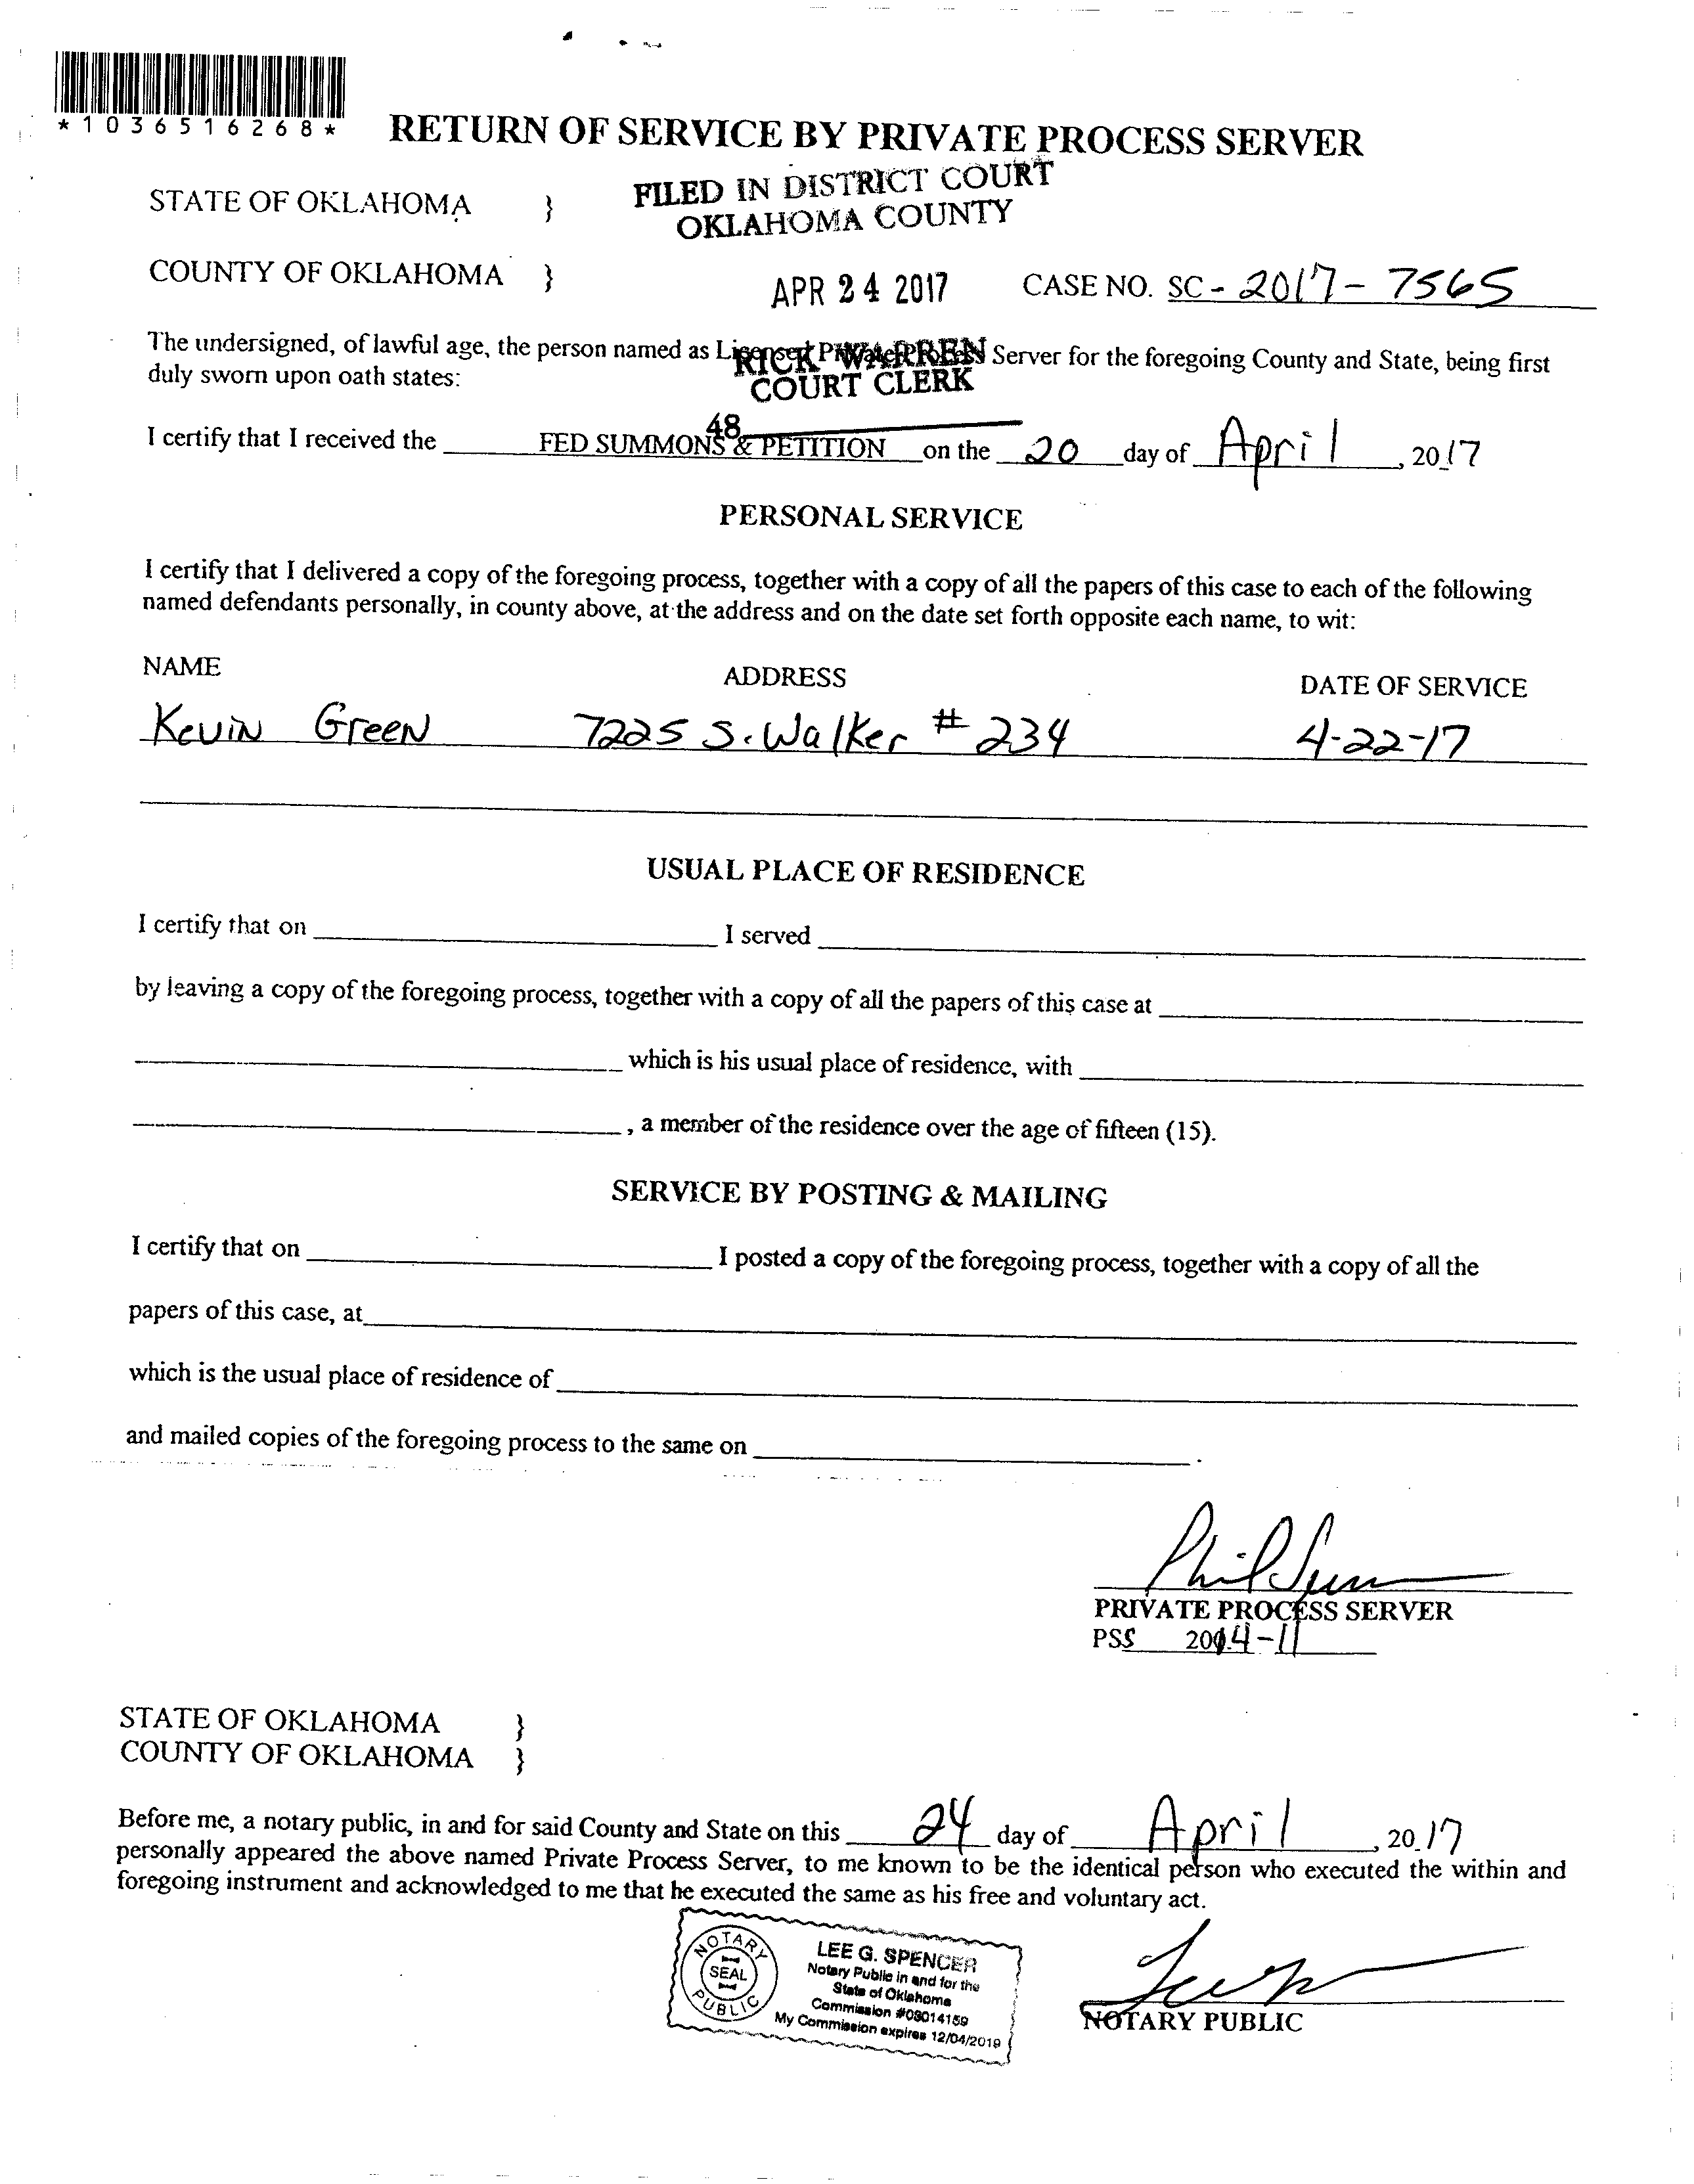 *1036516268*
RETURN OF SERVICE BY PRIVATE PROCESS SERVER
FILED IN DISTRICT COURT
OKLAHOMA COUNTY
STATE OF OKLAHOMA }
COUNTY OF OKLAHOMA }
APR 24 2017
CASE NO. SC - 2017 - 7565
The undersigned, of lawful age, the person named as Licensed Private Process Server for the foregoing County and State, being first
RICK WARREN
duly sworn upon oath states:
COURT CLERK
48
I certify that I received the FED SUMMONS & PETITION on the 20 day of April, 2017
PERSONAL SERVICE
I certify that I delivered a copy of the foregoing process, together with a copy of all the papers of this case to each of the following
named defendants personally, in county above, at the address and on the date set forth opposite each name, to wit:
NAME ADDRESS DATE OF SERVICE
Kevin Green 7225 S. Walker # 234 4-22-17
USUAL PLACE OF RESIDENCE
I certify that on I served
by leaving a copy of the foregoing process, together with a copy of all the papers of this case at
which is his usual place of residence, with
, a member of the residence over the age of fifteen (15).
SERVICE BY POSTING & MAILING
I certify that on I posted a copy of the foregoing process, together with a copy of all the
papers of this case, at
which is the usual place of residence of
and mailed copies of the foregoing process to the same on .
PRIVATE PROCESS SERVER
PSS 2014-11
STATE OF OKLAHOMA }
COUNTY OF OKLAHOMA }
Before me, a notary public, in and for said County and State on this 24 day of April, 2017
personally appeared the above named Private Process Server, to me known to be the identical person who executed the within and
foregoing instrument and acknowledged to me that he executed the same as his free and voluntary act.
NOTARY PUBLIC SEAL
LEE G. SPENCER
Notary Public in and for the
State of Oklahoma
Commission #03014159
My Commission expires 12/04/2019
NOTARY PUBLIC